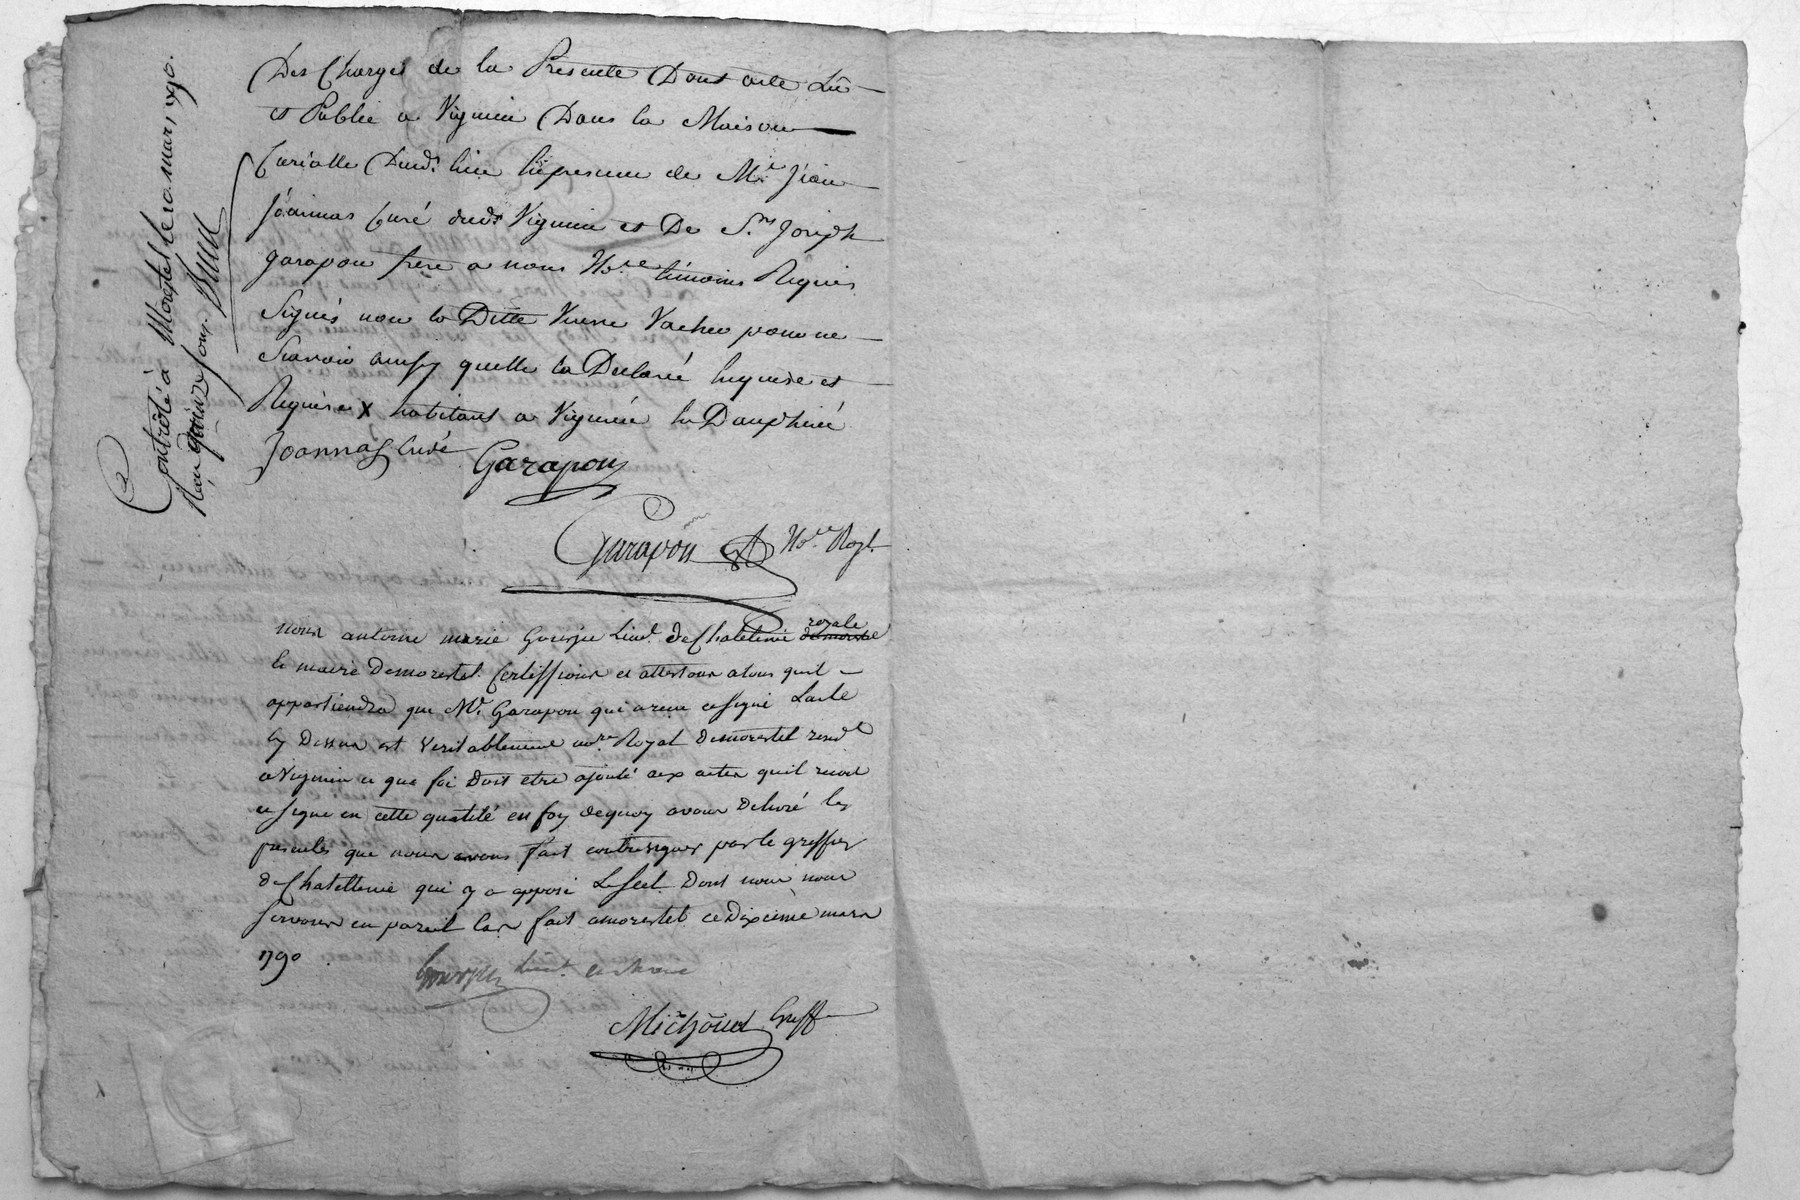 Des Charges de la Presente Dont acte Lû
et Publié a Vignieu Dans la Maison
Curialle Dud.t lieu En presence de M.e Jean
Joannas Curé dud.t Vignieu et De S.r Joseph
garapon frere a nous No.re témoins Requis
Signés non la Ditte Vieve Vacher pour ne
Scavoir ainsy quelle la Declaré Enquise et
Requise X habitants a Vignieu En Dauphiné
Joannas Curé
Garapon
Garapon No.re Roy.l
Controlé à Morestel le 10 mars 1790.
Reçu quinze sous
nous antoine marie Gourju Lieu.t de Chatelenie royale
de morestel
le mairie De morestel Certiffions et attestons a tous quil
appartiendra que M.r Garapon qui a reçu et signé Lacte
Cy Dessus est veritablement no.re Royal De morestel resid.t
a Vignieu et que foi Doit etre ajouté aux actes quil recoit
et signe en cette qualité en foy de quoy avons Delivré les
presentes que nous avons fait contresigner par le greffier
de Chatellenie qui y a apposé Le scel Dont nous nous
servons en pareil Cas fait a morestel ce Dixieme mars
1790
Gourju Lieut.
Michoud Greff